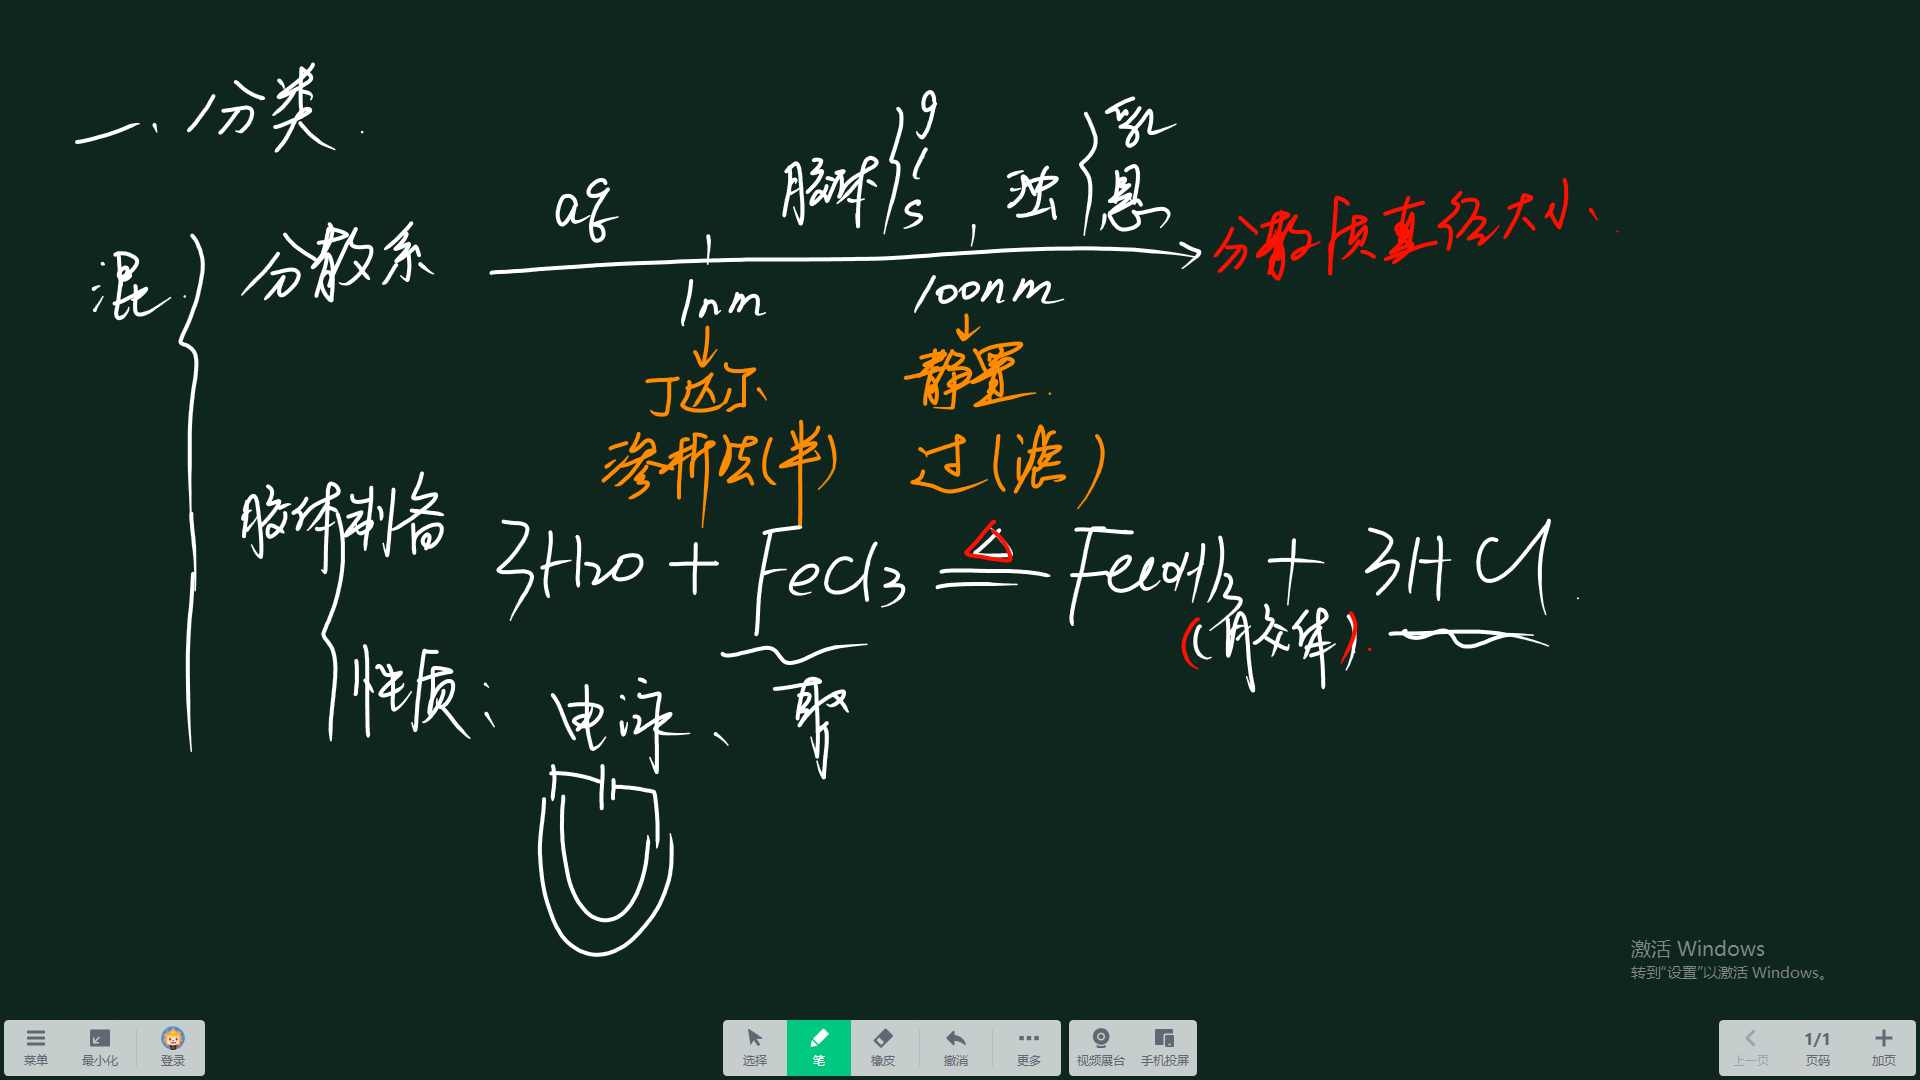 一、分类.
aq 胶体{g l s , 浊{乳 悬
混.{ 分散系
分散质直径大小、
1nm 100nm
↓ ↓
丁达尔 静置.
渗析法(半) 过(滤)
胶体制备
3H2O + FeCl3 ══△ Fe(OH)3 + 3HCl.
(胶体).
性质: 电泳、聚
激活 Windows
转到“设置”以激活 Windows。
菜单 最小化 登录 选择 笔 橡皮 撤消 更多 视频展台 手机投屏 上一页 1/1 页码 加页